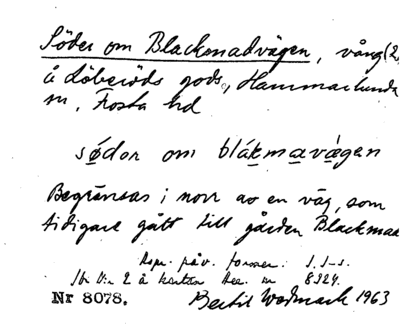 Söder om Blackmadvägen, vång (2
å Löberöds gods, Hammarlunda
sn, Frosta hd
sǿdor om blákmavágen
Begränsas i norr av en väg, som
tidigare gått till gården Blackmaa
Uppt. påv. former: J. J-s.
å kartan
Nr 8078. Bertil Wadmark 1963